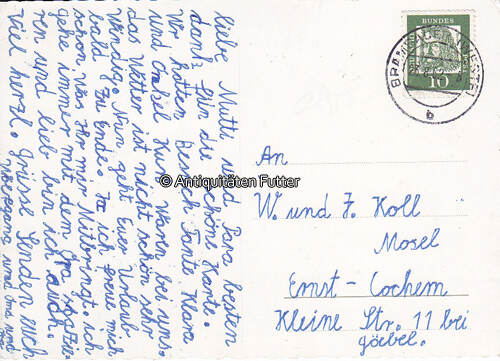 liebe Mutti und Papa besten
dank für die schöne Karte.
Wir hatten Besuch Tante Klara
und Onkel Kurt waren bei uns.
das Wetter ist nicht schön sehr
Windig. Nun geht Euer Urlaub
bald zu Ende. Ja ich freue mich
schon was Ihr mir Mitbringt. ich
gehe immer mit dem Opa spazie-
ren und lieb bin ich auch.
viel herzl. Grüsse Senden Euch
DEUTSCHE
BUNDESPOST
10
b
An
W. und J. Koll
Mosel
Ernst-Cochem
Kleine Str. 11 bei
Göbel.
© Antiquitäten Futter